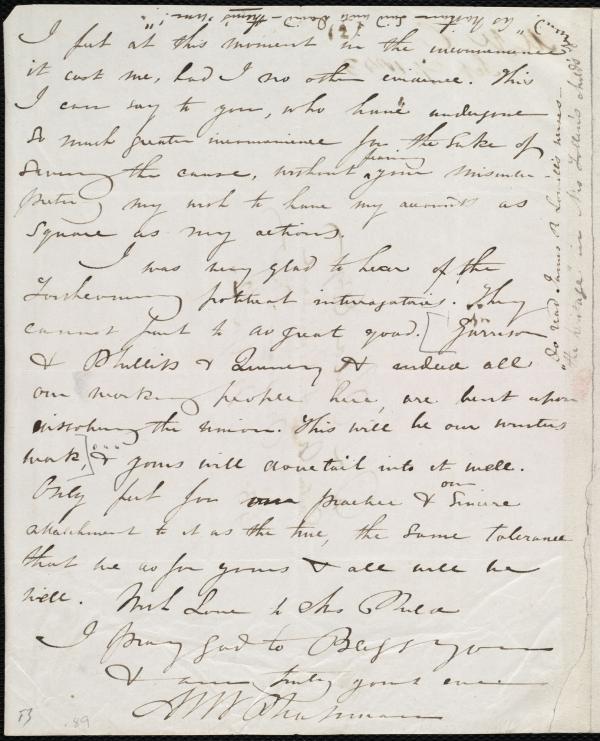 I felt at this moment in the inconvenience
it cost me, had I no other evidence. This
I can say to you, who have undergone
so much greater inconvenience for the sake of
serving the cause, without fearing your misinter-
preting my wish to have my accounts as
square as my actions.
I was very glad to hear of the
forthcoming political interrogatories. They
cannot fail to do great good. [Garrison
& Phillips & Quincy & indeed all
our working people here, are bent upon
dissolving the union. This will be our winters
work,] & yours will dovetail into it well.
Only feel for our practice & our sincere
attachment to it as the true, the same tolerance
that we do for yours & all will be
well. With Love to Mrs
I pray God to bless you
& am truly yours ever
M W Chapman
53 .89
(2)
"as Nathan said unto David - thou
Do read James R Lowell's verses
"the heritage" in Mrs Follen's child's